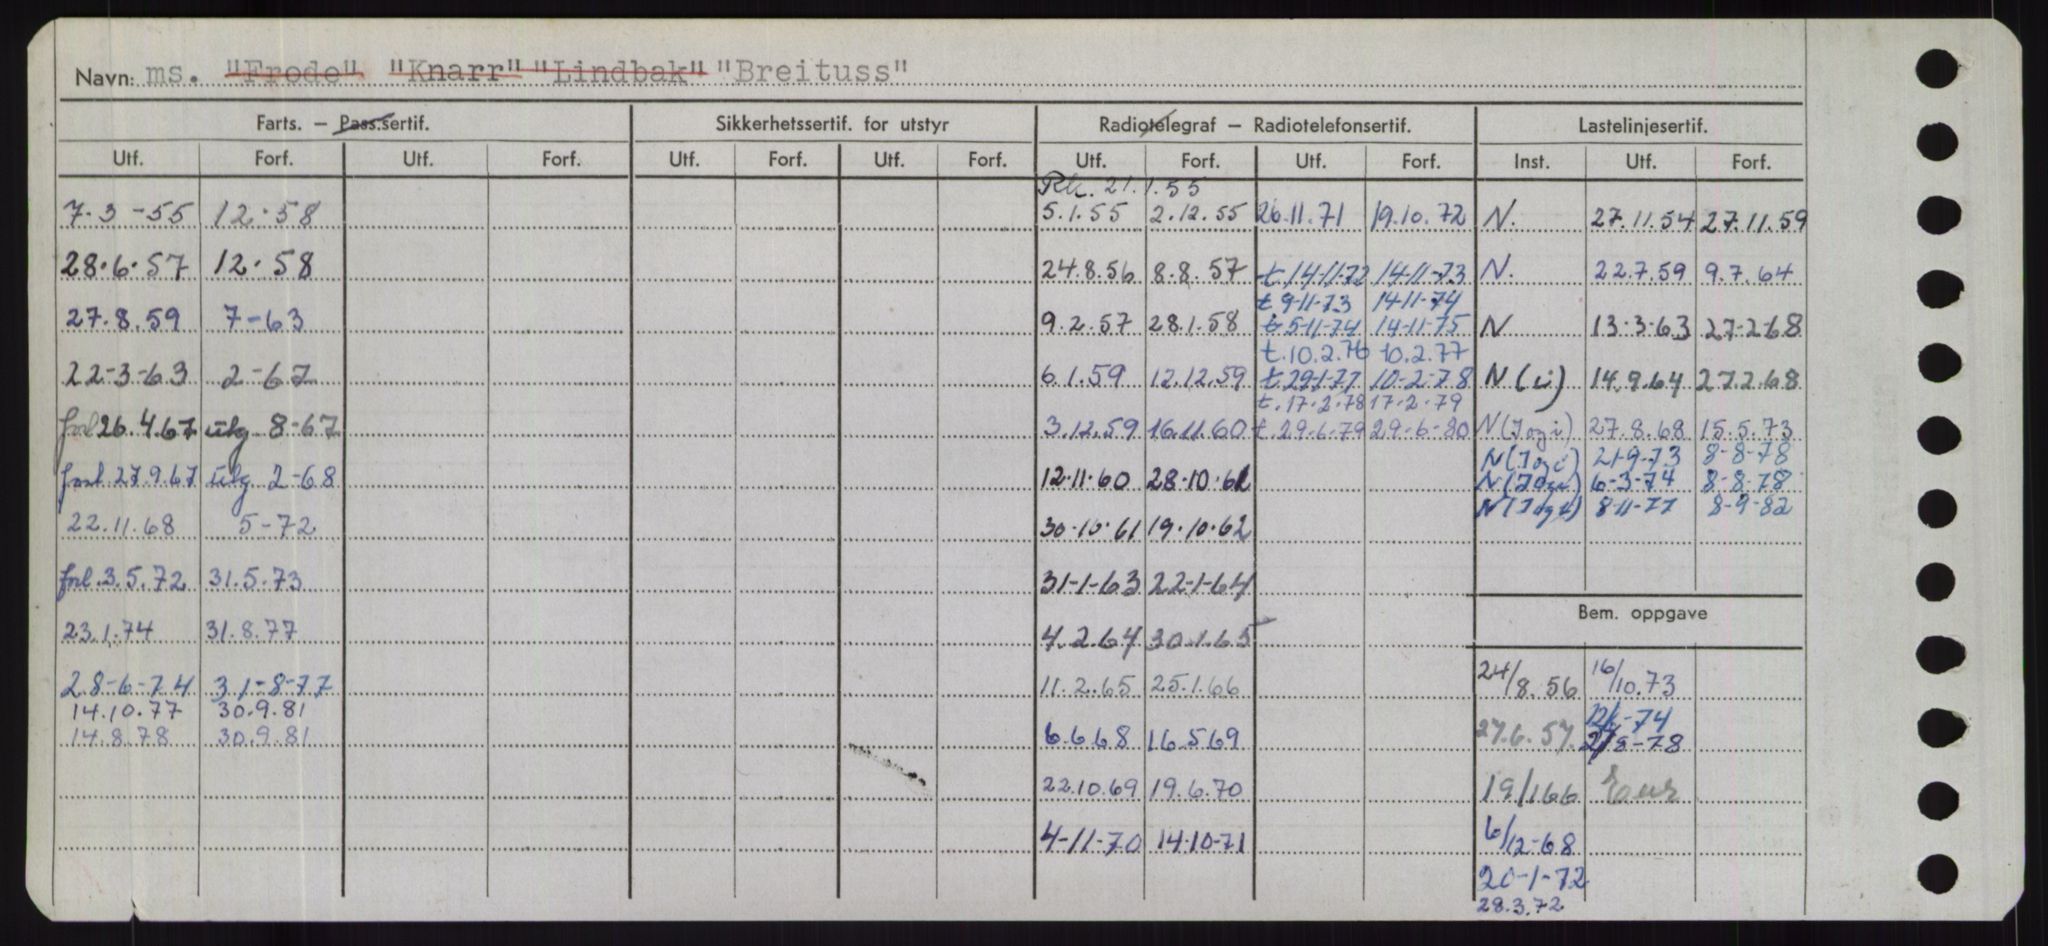 Navn: ms. "Frode" "Knarr" "Lindbak" "Breituss"
Farts. – Pass.sertif. Sikkerhetssertif. for utstyr Radiotelegraf – Radiotelefonsertif. Lastelinjesertif.
Utf. Forf. Utf. Forf. Utf. Forf. Utf. Forf. Utf. Forf. Utf. Forf. Inst. Utf. Forf.
21.1.55
7-3-55 12-58 5.1.55 2.12.55 26.11.71 19.10.72 N. 27.11.54 27.11.59
28.6.57 12.58 24.8.56 8.8.57 t.14-11-72 14-11-73 N. 22.7.59 9.7.64
t.9-11-73 14-11-74
27.8.59 7-63 9.2.57 28.1.58 t.5-11-74 14-11-75 N 13-3-63 27-2-68
t.10.2.76 10.2.77
22-3-63 2-67 6.1.59 12.12.59 t.29-1-77 10-2-78 N (i) 14.9.64 27.2.68
t.17.2.78 17.2.79
forl 26.4.67 utg 8-67 3.12.59 16.11.60 t.29.6.79 29-6-80 N (I og i) 27.8.68 15.5.73
N (I og i) 21-9-73 8-8-78
forl. 27.9.67 utg. 2-68 12-11-60 28-10-61 N (I og i) 6-3-74 8-8-78
N (I og i) 8-11-77 8-9-82
22.11.68 5-72 30-10-61 19-10-62
forl. 3.5.72 31.5.73 31-1-63 22-1-64
Bem. oppgave
23.1.74 31.8.77 4.2.64 30.1.65
28-6-74 31-8-77 11.2.65 25.1.66 24/8.56 16/10.73
14.10.77 30.9.81
14.8.78 30.9.81 6.6.68 16.5.69 27.6.57. 2/8-78
22.10.69 19.6.70 19/1 66
4-11-70 14-10-71 6/12-68
20-1-72
28.3.72